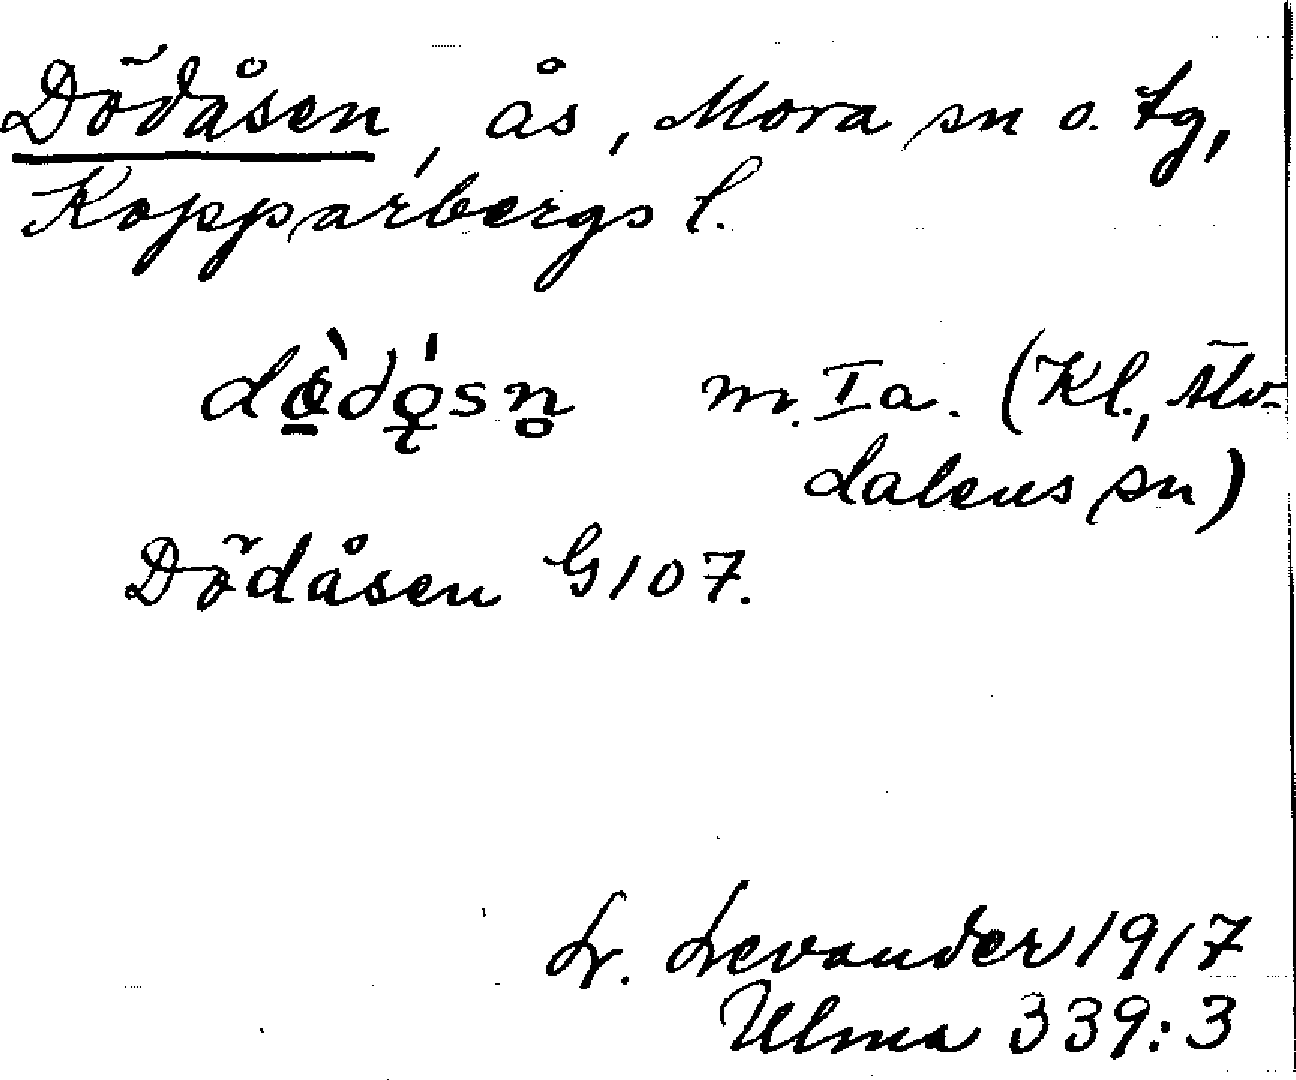 Dödåsen, ås, Mora sn o. tg,
Kopparbergs l.
dö̱̀dǫ̱́sn̥ m. Ia. (Kl., Älv-
dalens sn)
Dödåsen G107.
L. Levander 1917
Ulma 339:3